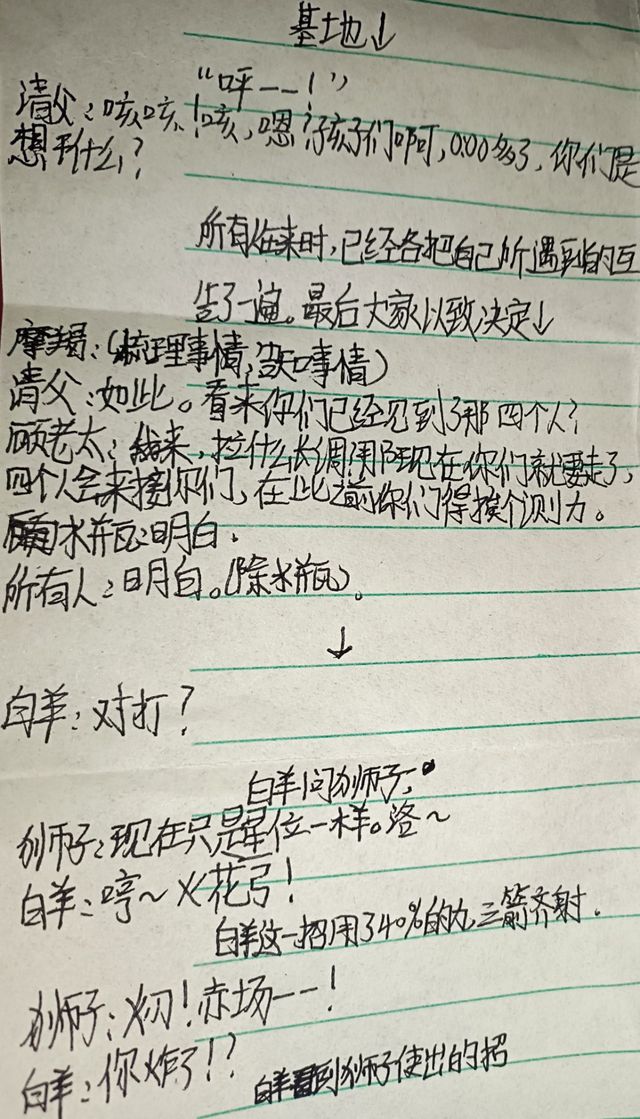 基地↓
“呼——！”
清父：咳咳！咳，嗯？孩子们啊，0:00多了，你们是
想干什么？
所有临来时，已经各把自己所遇到的互
告了一遍。最后大家以致决定↓
摩羯：(梳理事情，告知事情)
清父：如此。看来你们已经见到了那四个人？
顾老太：钱来，拉什么长调用阵现在你们就要走了，
四个人会来接你们，在此之前你们得挨个测力。
水瓶：明白。
所有人：明白。(除水瓶)。
↓
白羊：对打？
白羊问狮子：
狮子：现在只是星位一样。洛～
白羊：哼～火花弓！
白羊这一招用了40%的力，三箭齐射。
狮子：火刃！赤场——！
白羊：你炸了！？
白羊看到狮子使出的招